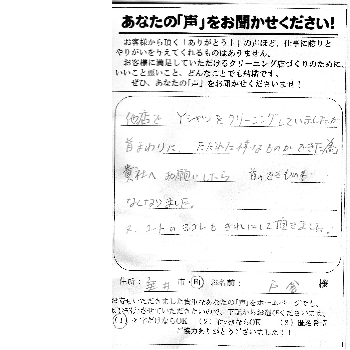 あなたの「声」をお聞かせください!
お客様から頂く「ありがとう!」の声ほど、仕事に誇りと
やりがいを与えてくれるものはありません。
お客様に満足していただけるクリーニング店づくりのために、
いいこと悪いこと、どんなことでも結構です。
ぜひ、あなたの「声」をお聞かせくださいませ!
他店で Yシャツをクリーニングしていましたが
首まわりに、ただれた様なものができた為
貴社へ お願いしたら 首のできものも
なくなりました。
又、コートの
きれいにして頂きました。
ご住所: 市・町 お名前: 戸倉 様